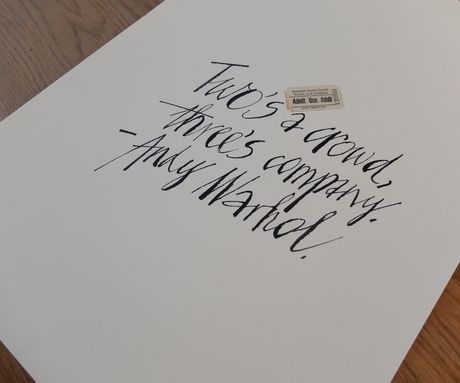 Two's a crowd,
three's company.
- Andy Warhol.
Admit One Adult